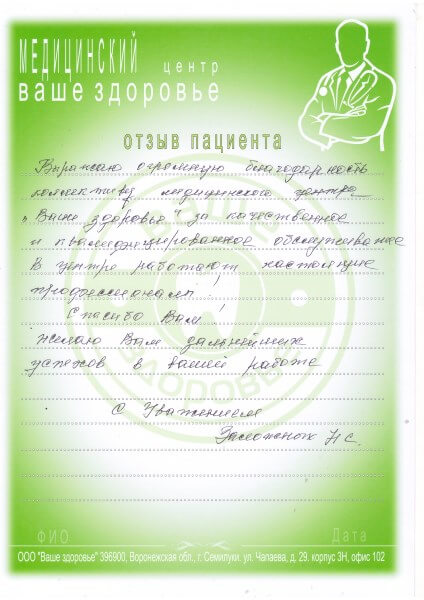 МЕДИЦИНСКИЙ центр
ваше здоровье
отзыв пациента
Выражаю огромную благодарность
коллективу медицинского центра
„Ваше здоровье" за качественное
и квалифицированное обслуживание
В центре работают настоящие
профессионалы!
Спасибо Вам!
желаю Вам дальнейших
успехов в вашей работе
С Уважением
Н С.
ЗДОРОВЬЕ
ФИО Дата
ООО "Ваше здоровье" 396900, Воронежская обл., г. Семилуки. ул. Чапаева, д. 29. корпус 3Н, офис 102